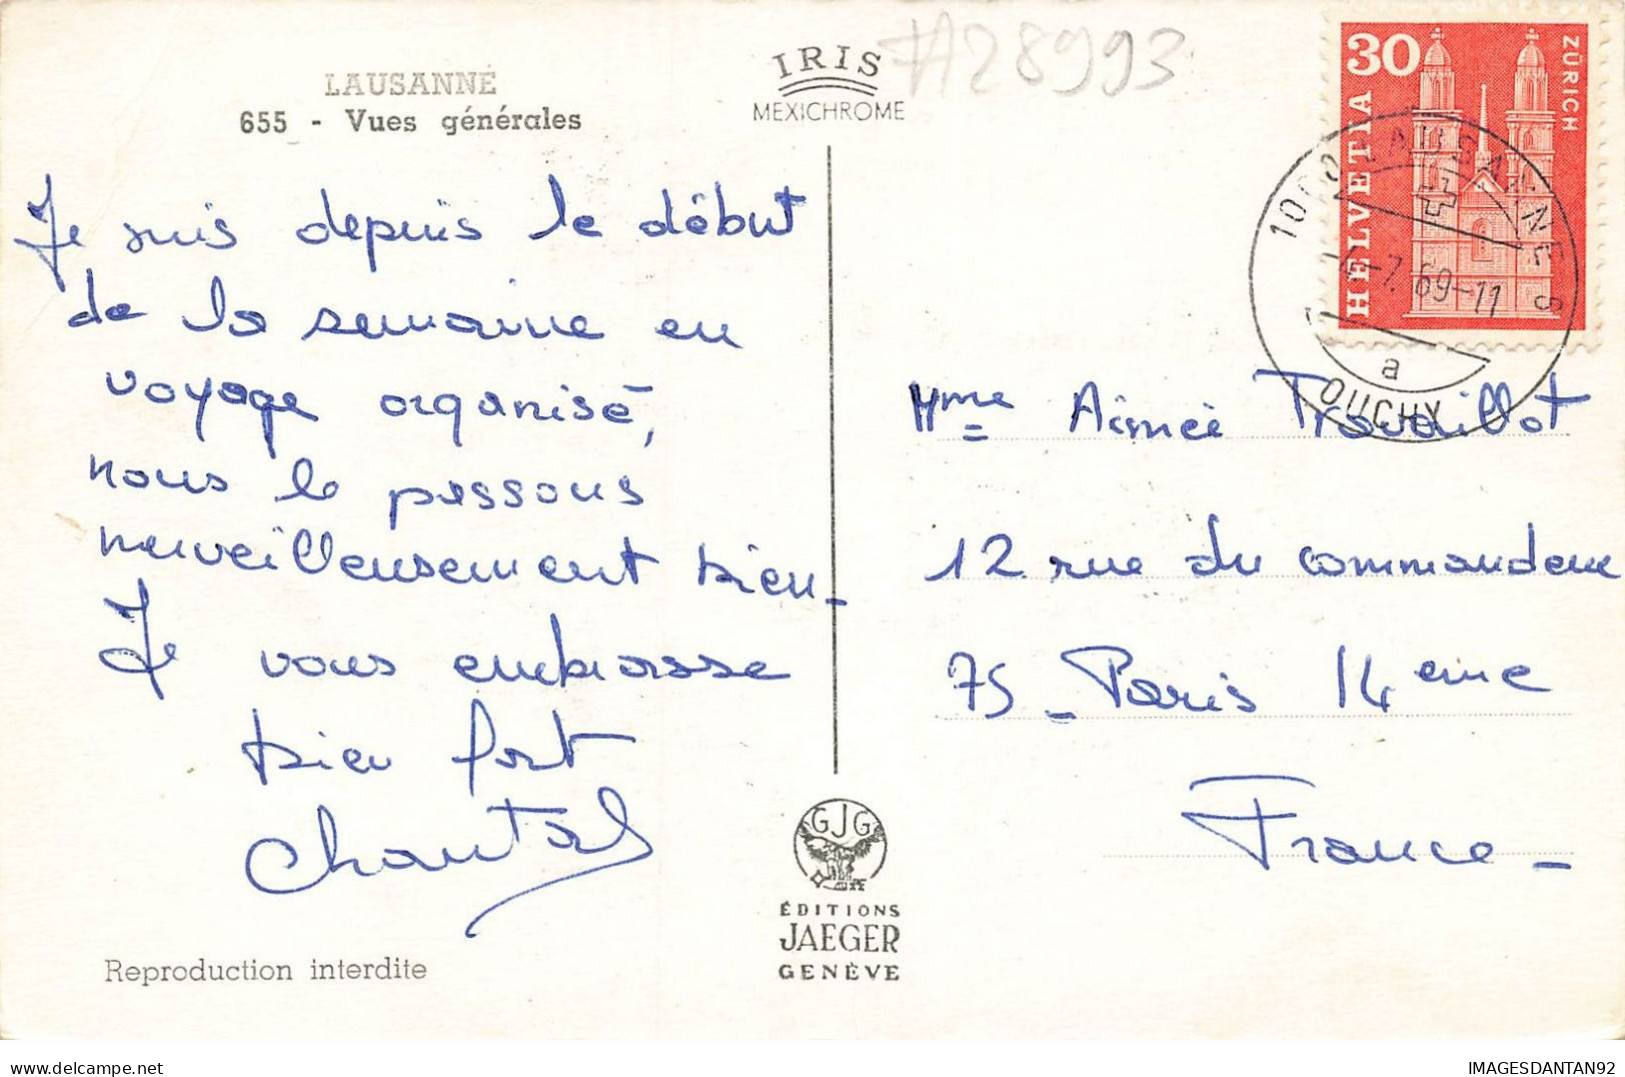 LAUSANNE
655 - Vues générales
IRIS
MEXICHROME
#28993
30
HELVETIA
ZÜRICH
1000 LAUSANNE
-7.69-11
a
OUCHY
Je suis depuis le début
de la semaine en
voyage organisé,
nous le passons
merveilleusement bien -
Je vous embrasse
bien fort
Chantal
Mme Aimée Travaillot
12 rue du commandeur
75 - Paris 14 eme
France -
GJG
ÉDITIONS
JAEGER
GENÈVE
Reproduction interdite
IMAGESDANTAN92
delcampe.net